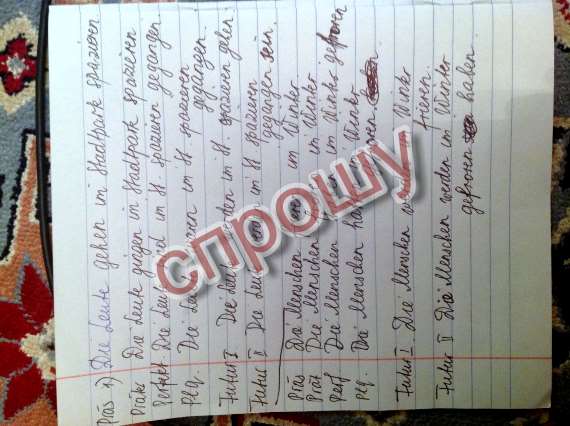 Präs 1) Die Leute gehen im Stadtpark spazieren
Prät Die Leute gingen im Stadtpark spazieren
Perfekt Die im St. spazieren gegangen
Plq. Die im St. spazieren
gegangen
Futur I Die im St. spazieren gehen.
Futur II Die im St. spazieren
gegangen sein.
Präs Die Menschen im Winter
Prät Die Menschen im Winter
Perf Die Menschen im Winter gefroren
Plq. Die Menschen im Winter
Futur I Die Menschen Winter
frieren.
Futur II Die Menschen werden im Winter
gefroren haben
спрошу